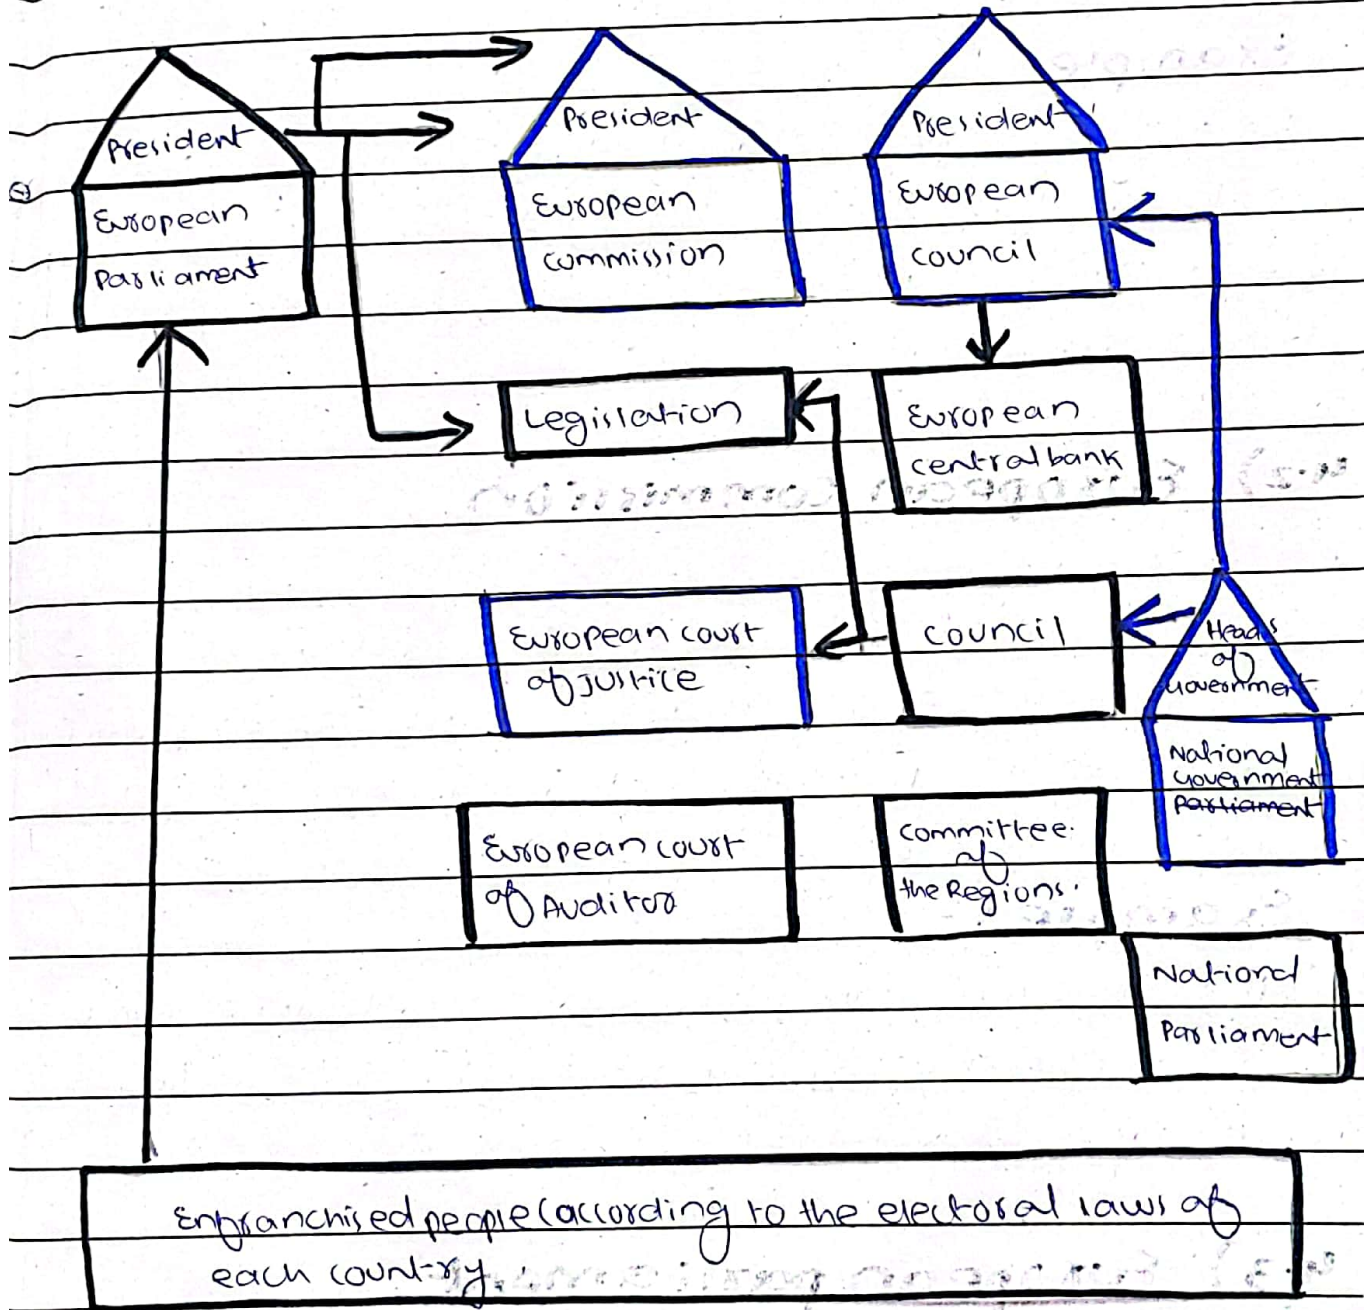 President
European
Parliament
President
European
commission
President
European
council
Legislation
European
central bank
European court
of justice
council
Heads
of
Government
National
Government
Parliament
European court
of Auditor
committee
of
the Regions.
National
Parliament
Enfranchised people (according to the electoral laws of
each country.